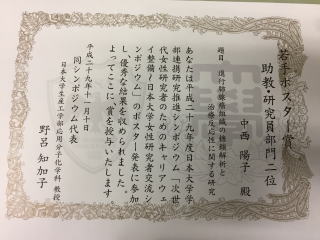 若手ポスター賞
助教・研究員部門二位
中西 陽子 殿
題目 進行肺腺癌組織の機縁解析と
治療反応性に関する研究
あなたは平成二十九年度日本大学学
部連携研究推進シンポジウム「次世
代女性研究者のためのキャリアウェ
イ整備〜日本大学女性研究者交流シ
ンポジウム」のポスター発表に参加
し、優秀な結果を収められました。
よってここに賞を授与いたします。
平成二十九年十一月十日
同シンポジウム代表
日本大学生産工学部応用分子化学科 教授
野呂 知加子